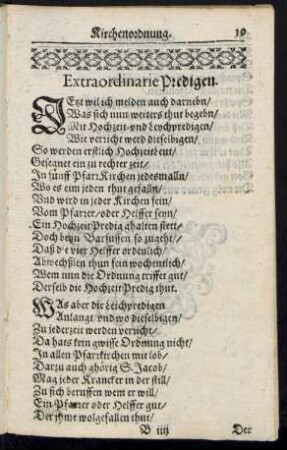 Kirchenordnung. 19
Extraordinarie Predigen.
JEtzt wil ich melden auch darnebn/
Was sich nun weiters thut begebn/
Mit Hochzeit vnd Leychpredigen/
Wie verricht werd dieselbigen/
So werden erstlich Hochzeit Leut/
Gesegnet ein zu rechter zeit/
In fünff PfarrKirchen jedesmalln/
Wo es eim jeden thut gefalln/
Vnd wird in jeder Kirchen fein/
Vom Pfarrer/oder Helffer seyn/
Ein Hochzeit Predig ghalten stett/
Doch beyn Barfussen so zugeht/
Daß die vier Helffer ordenlich/
Abwechßlen thun fein wochentlich/
Wem nun die Ordnung triffet gut/
Derselb die Hochzeit Predig thut.
WAs aber die Leichpredigen
Anlangt/vnd wo dieselbigen/
Zu jederzeit werden verricht/
Da hats kein gwisse Ordnung nicht/
In allen Pfarrkirchen mit lob/
Darzu auch ghörig S. Jacob/
Mag jeder Krancker in der still/
Zu sich beruffen wem er will/
Ein Pfarrer oder Helffer gut/
Der jhme wolgefallen thut/
B iiij Der